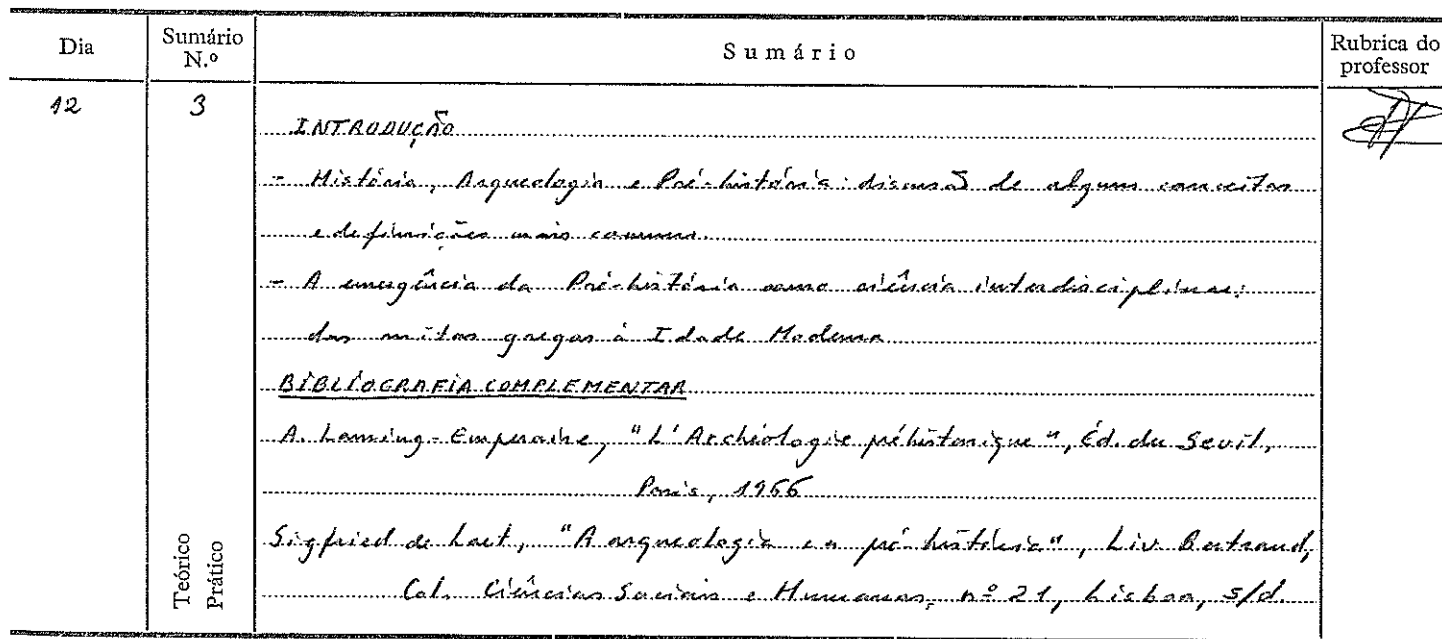 Dia
Sumário N.º
Sumário
Rubrica do professor
12
3
INTRODUÇÃO
- História, Arqueologia e Pré-história: discussão de alguns conceitos
e definições mais comuns.
- A emergência da Pré-história como ciência interdisciplinar:
dos mitos gregos à Idade Moderna
BIBLIOGRAFIA COMPLEMENTAR
A. Laming-Emperaire, "L'Archéologie préhistorique", Éd. du Seuil,
Paris, 1966
Sigfried de Laet, "A arqueologia e a pré-história", Liv. Bertrand,
Col. Ciências Sociais e Humanas, nº 21, Lisboa, s/d.
Teórico
Prático